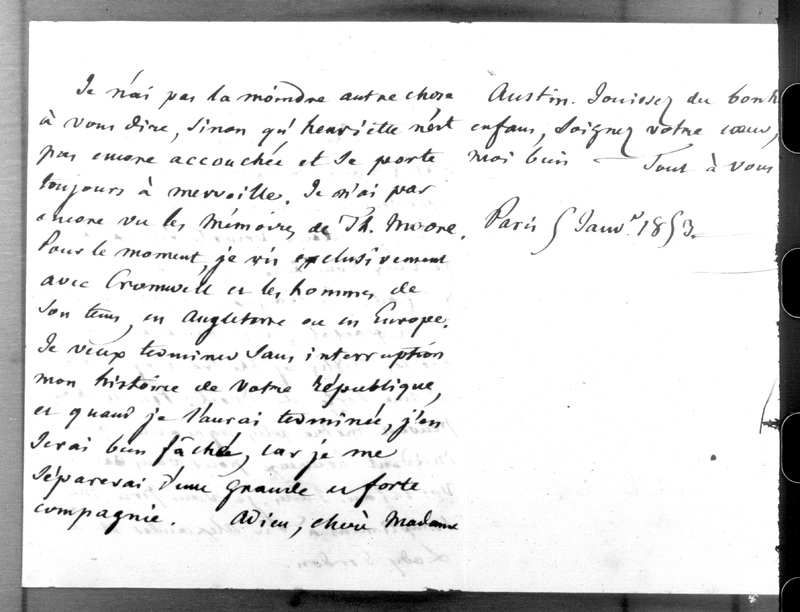 Je n'ai pas la moindre autre chose
à vous dire, sinon qu'henriette n'est
pas encore accouchée et se porte
toujours à merveille. Je n'ai pas
encore vu les Mémoires de Th. Moore.
Pour le moment, je vis exclusivement
avec Cromwell et les hommes de
son tems, en Angleterre ou en Europe.
Je veux terminer sans interruption
mon histoire de votre République,
et quand je l'aurai terminée, j'en
serai bien fâché, car je me
séparerai d'une grande et forte
compagnie. Adieu, chère Madame
Austin. Jouissez du bonh
enfans, soignez votre cœur,
moi bien — Tout à vous
Paris 5 Janvr. 1853.
Lady Gordon.